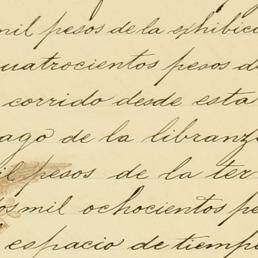 mil pesos de la exhibic
uatrocientos pesos d
corrido desde esta
ago de la libranz
il pesos de la ter
os mil ochocientos pe
espacio de tiemp